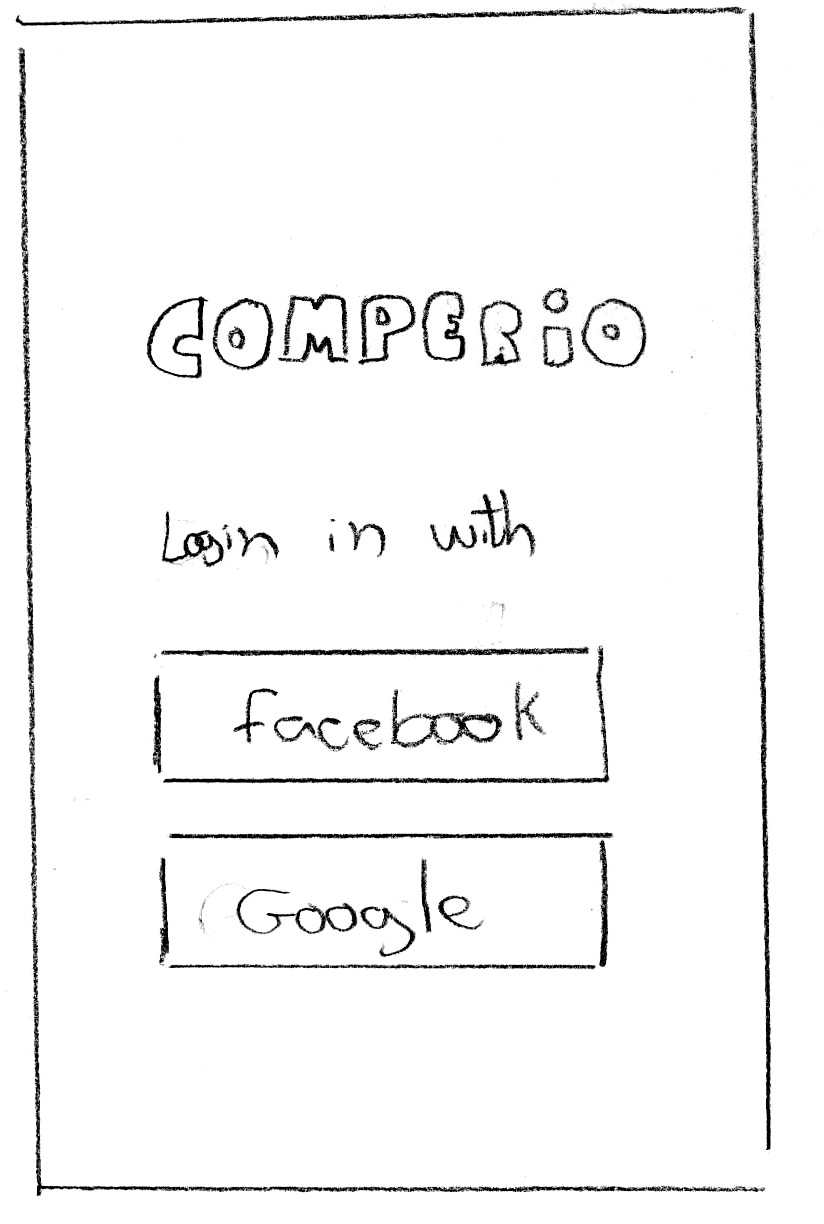 COMPERiO
Login in with
facebook
Google